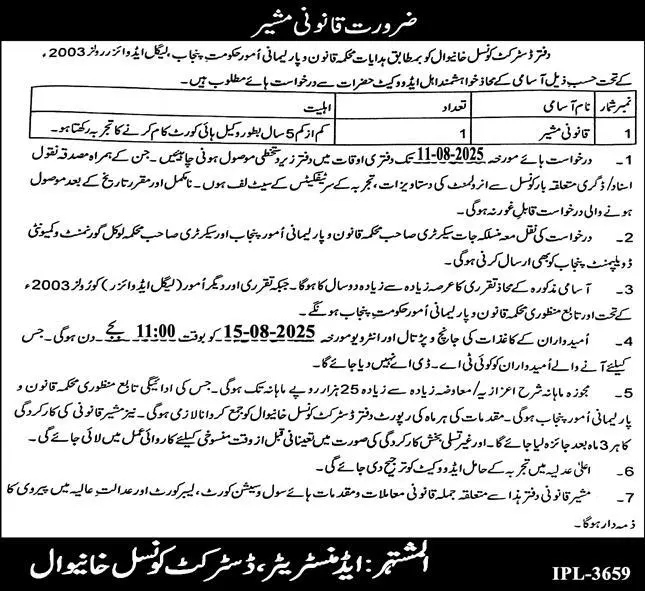 ضرورت قانونی مشیر
دفتر ڈسٹرکٹ کونسل خانیوال کو بمطابق ہدایات محکمہ قانون و پارلیمانی اُمور حکومت پنجاب، لیگل ایڈوائزر رولز 2003ء
کے تحت حسب ذیل آسامی کے محاذ خواہشمند اہل ایڈووکیٹ حضرات سے درخواست ہائے مطلوب ہیں۔
نمبر شمار نام آسامی تعداد اہلیت
1 قانونی مشیر 1 کم از کم 5 سال بطور وکیل ہائی کورٹ کام کرنے کا تجربہ رکھتا ہو۔
1۔ درخواست ہائے مورخہ 11-08-2025 تک دفتری اوقات میں دفتر زیر دستخطی موصول ہونی چاہئیں۔ جن کے ہمراہ مصدقہ نقول
اسناد/ڈگری متعلقہ بار کونسل سے انرولمنٹ کی دستاویزات، تجربہ کے سرٹیفکیٹس کے سیٹ لف ہوں۔ نامکمل اور مقررہ تاریخ کے بعد موصول
ہونے والی درخواست قابل غور نہ ہوگی۔
2۔ درخواست کی نقل معہ منسلکہ جات سیکرٹری صاحب محکمہ قانون و پارلیمانی اُمور پنجاب اور سیکرٹری صاحب محکمہ لوکل گورنمنٹ و کمیونٹی
ڈویلپمنٹ پنجاب کو بھی ارسال کرنی ہوگی۔
3۔ آسامی مذکورہ کے محاذ تقرری کا عرصہ زیادہ سے زیادہ دو سال کا ہوگا۔ جبکہ تقرری اور دیگر اُمور (لیگل ایڈوائزر) کو رُولز 2003ء
کے تحت اور تابع منظوری محکمہ قانون و پارلیمانی اُمور حکومت پنجاب ہونگے۔
4۔ اُمیدواران کے کاغذات کی جانچ و پڑتال اور انٹرویو مورخہ 15-08-2025 کو بوقت 11:00 بجے دن ہوگی۔ جس
کیلئے آنے والے اُمیدواران کو کوئی ٹی اے۔ ڈی اے نہیں دیا جائے گا۔
5۔ مجوزہ ماہانہ شرح اعزازیہ/معاوضہ زیادہ سے زیادہ 25 ہزار روپے ماہانہ تک ہوگی۔ جس کی ادائیگی تابع منظوری محکمہ قانون و
پارلیمانی اُمور پنجاب ہوگی۔ مقدمات کی ہر ماہ کی رپورٹ دفتر ڈسٹرکٹ کونسل خانیوال کو جمع کروانا لازمی ہوگی۔ نیز مشیر قانونی کی کارکردگی
کا ہر 3 ماہ بعد جائزہ لیا جائے گا۔ اور غیر تسلی بخش کارکردگی کی صورت میں تعیناتی قبل از وقت منسوخی کیلئے کاروائی عمل میں لائی جائے گی۔
6۔ اعلیٰ عدلیہ میں تجربہ کے حامل ایڈووکیٹ کو ترجیح دی جائے گی۔
7۔ مشیر قانونی دفتر ہذا سے متعلقہ جملہ قانونی معاملات و مقدمات ہائے سول و سیشن کورٹ، لیبر کورٹ اور عدالت عالیہ میں پیروی کا
ذمہ دار ہوگا۔
المشتہر: ایڈمنسٹریٹر، ڈسٹرکٹ کونسل خانیوال
IPL-3659